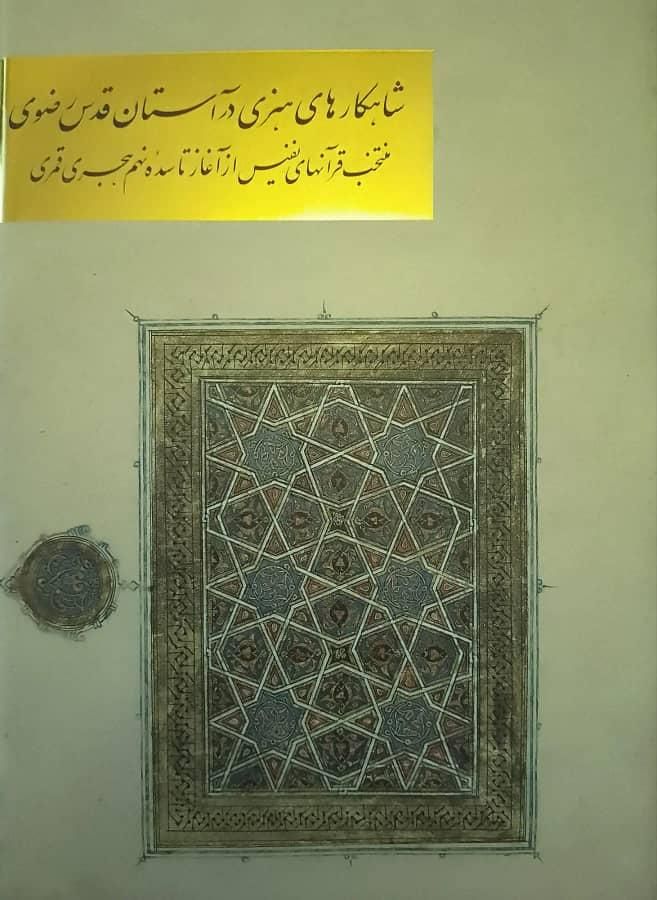 شاهکارهای هنری در آستان قدس رضوی
منتخب قرآنهای نفیس از آغاز تا سدهٔ نهم هجری قمری